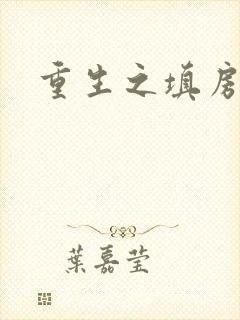 重生之填房
葉嘉莹